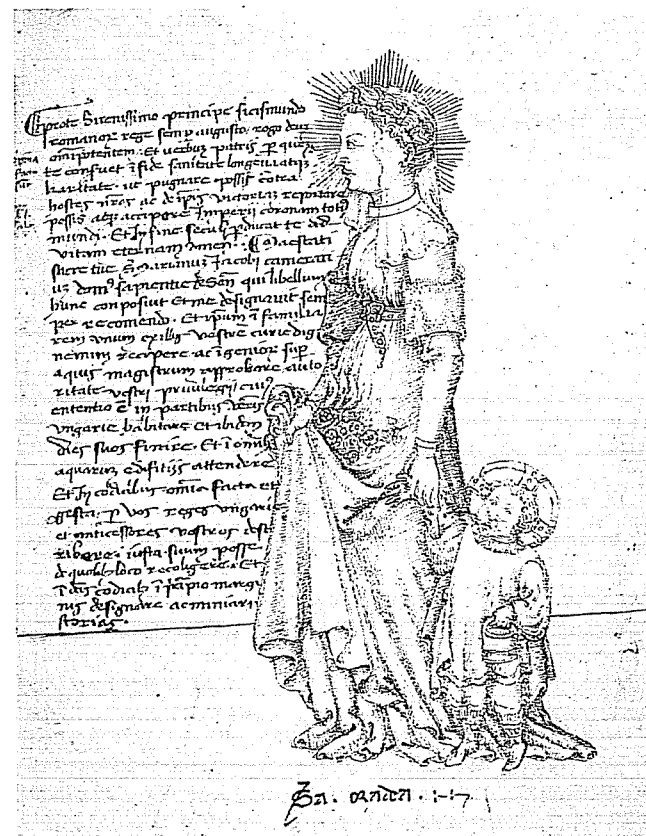 prote Sirenissimo principe sicismundo
romanor rege semp augusto rogo deu
omnipotentem. Et verbus patris per que
te conservet i fide sanitate longevitatis
hilaritate. ut pugnare possis contra
hostes nros ac de ipsis victorias reportare
possis atq accipere Imperii coronam toti
mundi. Et In fine seculi perducat te ad
vitam eternam amen. Maestati
sacre tue S Marianus Jacobi camerari
us dom sapientie de Sen qui libellum
hunc composuit Et me designavit sem
per recomendo. Et ipsum i familia
rem unum ex illis vostre curie dig
nemini recipere ac igenior sup
aquis magistrum approbare auto
ritate vostri privilegii cuius
ententio e in partibus vestris
ungarie habitare et ibidem
dies suos finire. Et i omnib
aquarum edifitiis attendere
Et In codicibus omnia facta et
gesta per vos reges ungarie
et anticessores vostros desc
ribere. iusta suum posse
de quolib loco recoligere. Et
i dis codicib i principio margi
nis designare ac miniari
storias.
Sa. orada.